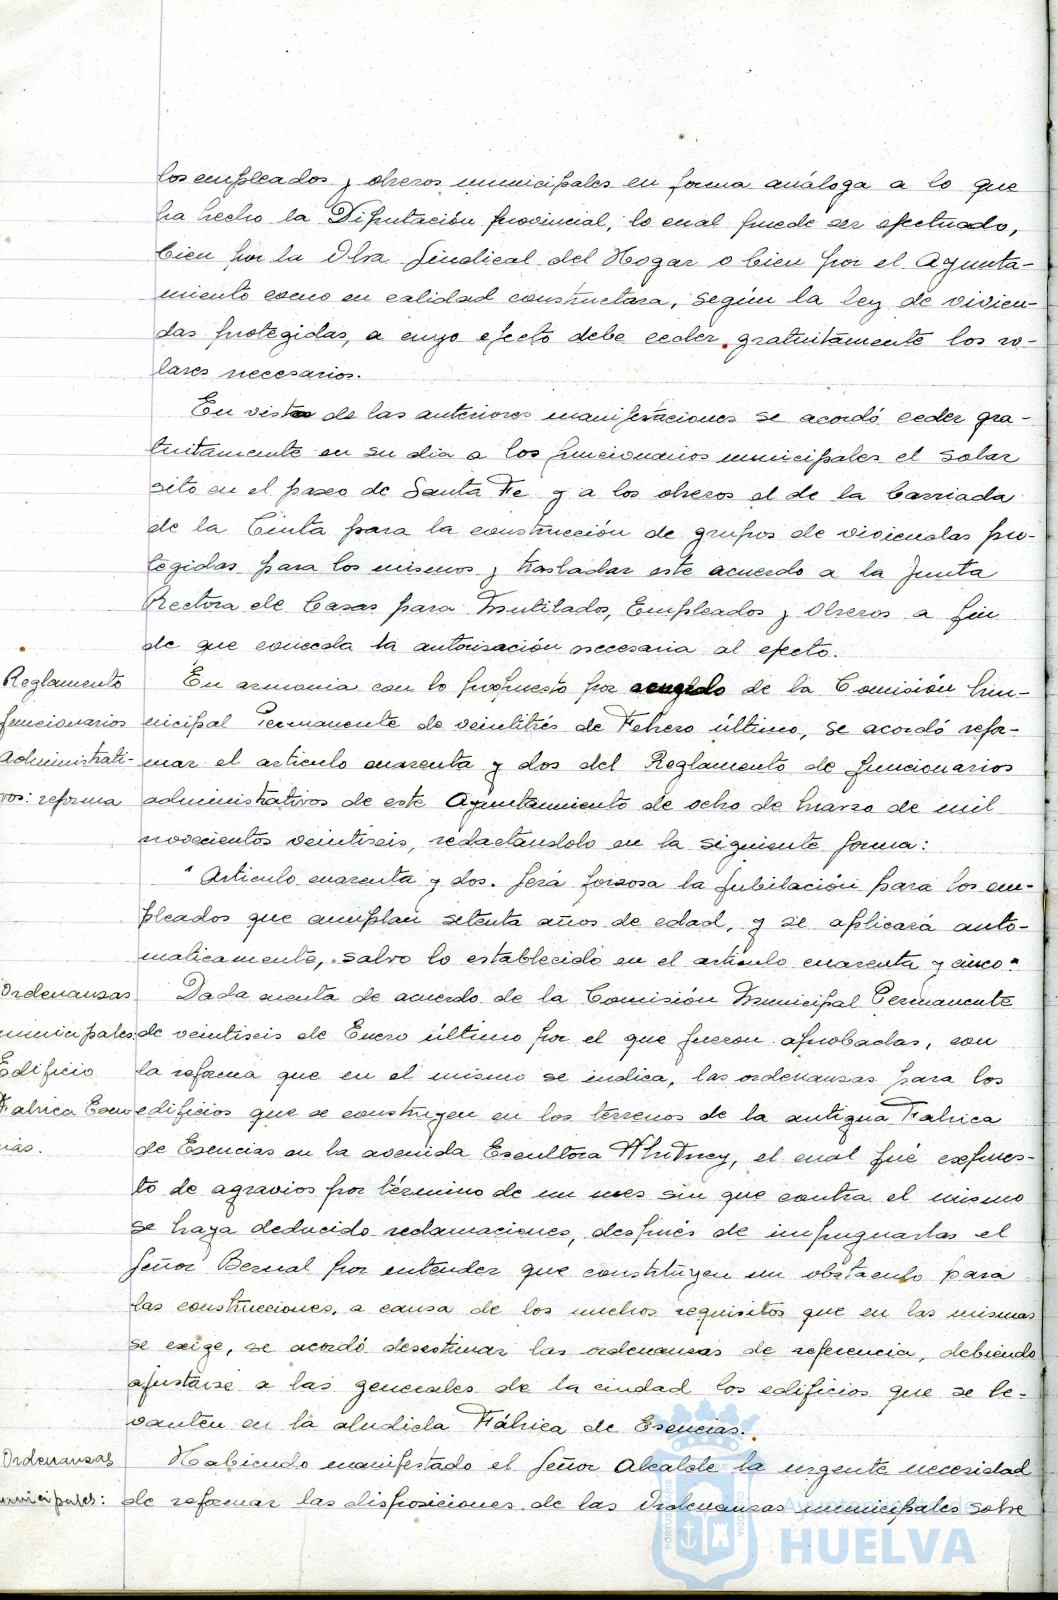 los empleados y obreros municipales en forma análoga a lo que
ha hecho la Diputación provincial, lo cual puede ser efectuado,
bien por la Obra Sindical del Hogar o bien por el Ayunta-
miento como en calidad constructora, según la ley de vivien-
das protegidas, a cuyo efecto debe ceder gratuitamente los so-
lares necesarios.
En vista de las anteriores manifestaciones se acordó ceder gra-
tuitamente en su dia a los funcionarios municipales el solar
sito en el paseo de Santa Fe y a los obreros el de la barriada
de la Cinta para la construcción de grupos de viviendas pro-
tegidas para los mismos y trasladar este acuerdo a la Junta
Rectora de Casas para Mutilados, Empleados y Obreros a fin
de que conceda la autorisación necesaria al efecto.
Reglamento
funcionarios
administrati-
vos: reforma
En armonia con lo propuesto por acuerdo de la Comisión Mu-
nicipal Permanente de veintitrés de Febrero último, se acordó refor-
mar el articulo cuarenta y dos del Reglamento de funcionarios
administrativos de este Ayuntamiento de ocho de Marzo de mil
novecientos veintiseis, redactandolo en la siguiente forma:
"Articulo cuarenta y dos. Será forzosa la jubilación para los em-
pleados que cumplan setenta años de edad, y se aplicará auto-
maticamente, salvo lo establecido en el articulo cuarenta y cinco."
Ordenanzas
municipales
Edificio
Fabrica Esen
cias.
Dada cuenta de acuerdo de la Comisión Municipal Permanente
de veintiseis de Enero último por el que fueron aprobadas, con
la reforma que en el mismo se indica, las ordenansas para los
edificios que se construyen en los terrenos de la antigua Fabrica
de Esencias en la avenida Escultora Whitney, el cual fué expues-
to de agravios por término de un mes sin que contra el mismo
se haya deducido reclamaciones, después de impugnarlas el
Señor Bernal por entender que constituyen un obstaculo para
las construcciones, a causa de los muchos requisitos que en las mismas
se exige, se acordó desestimar las ordenansas de referencia, debiendo
ajustarse a las generales de la ciudad los edificios que se le-
vanten en la aludida Fábrica de Esencias.
Ordenansas
municipales:
Habiendo manifestado el Señor Alcalde la urgente necesidad
de reformar las disposiciones de las Ordenansas municipales sobre
HUELVA